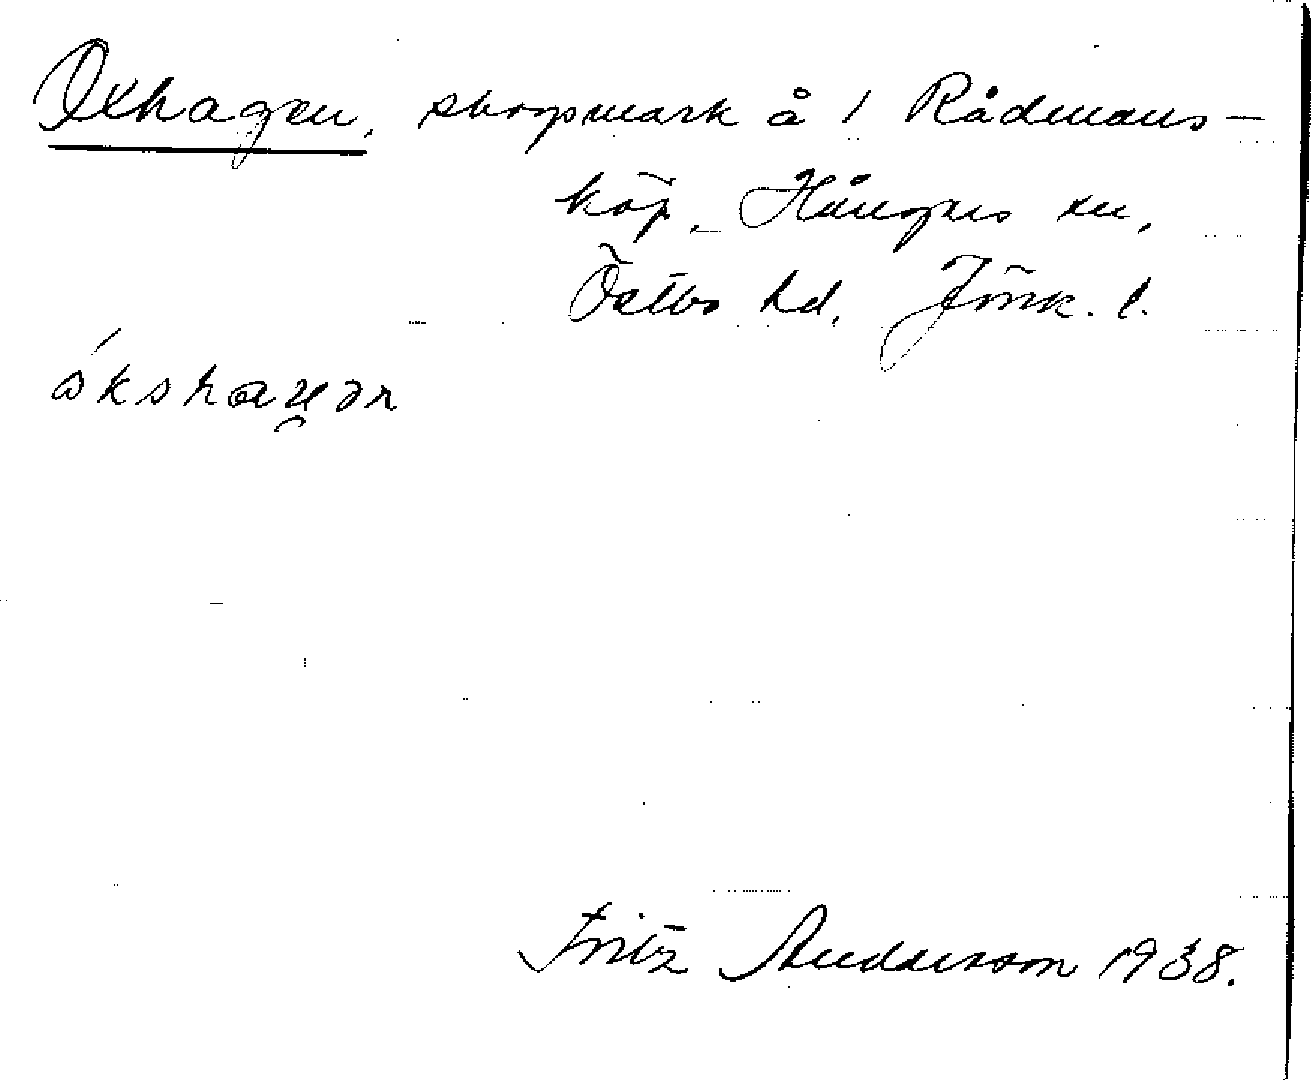 Oxhagen, skogsmark å 1 Rådmans-
köp, Hånger sn,
Östbo hd, Jönk. l.
Fritz Andersson 1938.